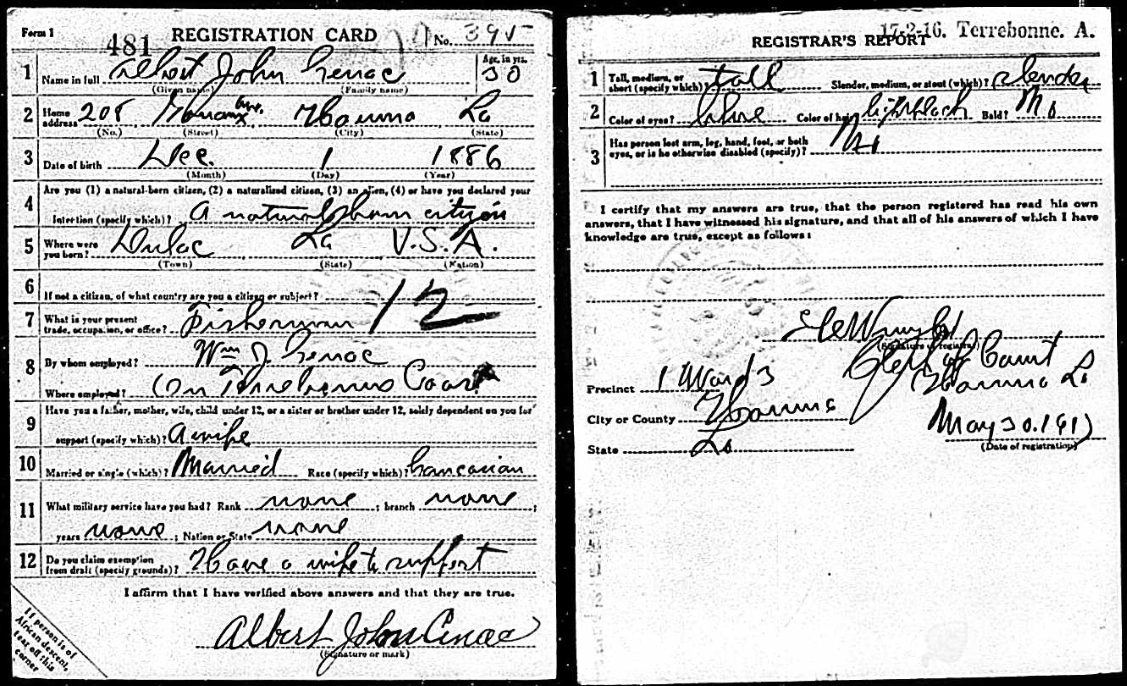 Form 1
481
REGISTRATION CARD
No. 395
1 Name in full Albert John Cenac Age, in yrs. 30
(Given name) (Family name)
2 Home address 208 Ave. Houma La
(No.) (Street) (City) (State)
3 Date of birth Dec. 1 1886
(Month) (Day) (Year)
4 Are you (1) a natural-born citizen, (2) a naturalized citizen, (3) an alien, (4) or have you declared your
intention (specify which)? A natural born cityen
5 Where were you born? Dulac La U.S.A.
(Town) (State) (Nation)
6 If not a citizen, of what country are you a citizen or subject?
12
7 What is your present trade, occupation, or office? Fisherman
8 By whom employed? Wm J. Cenac
Where employed? On Terrebonne Coast
9 Have you a father, mother, wife, child under 12, or a sister or brother under 12, solely dependent on you for
support (specify which)? A wife
10 Married or single (which)? Married Race (specify which)? Caucasian
11 What military service have you had? Rank none ; branch none ;
years none ; Nation or State none
12 Do you claim exemption from draft (specify grounds)? Have a wife to support
I affirm that I have verified above answers and that they are true.
Albert John Cenac
(Signature or mark)
If person is of
African descent,
tear off this
corner
17-2-16. Terrebonne. A.
REGISTRAR'S REPORT
1 Tall, medium, or short (specify which)? tall Slender, medium, or stout (which)? slender
2 Color of eyes? blue Color of hair? Bald? No
3 Has person lost arm, leg, hand, foot, or both eyes, or is he otherwise disabled (specify)? No
I certify that my answers are true, that the person registered has read his own
answers, that I have witnessed his signature, and that all of his answers of which I have
knowledge are true, except as follows:
(Signature of registrar)
Clerk of Court
Precinct 1 Ward 3
Houma La
City or County Houma
State La
May 30. 1917
(Date of registration)